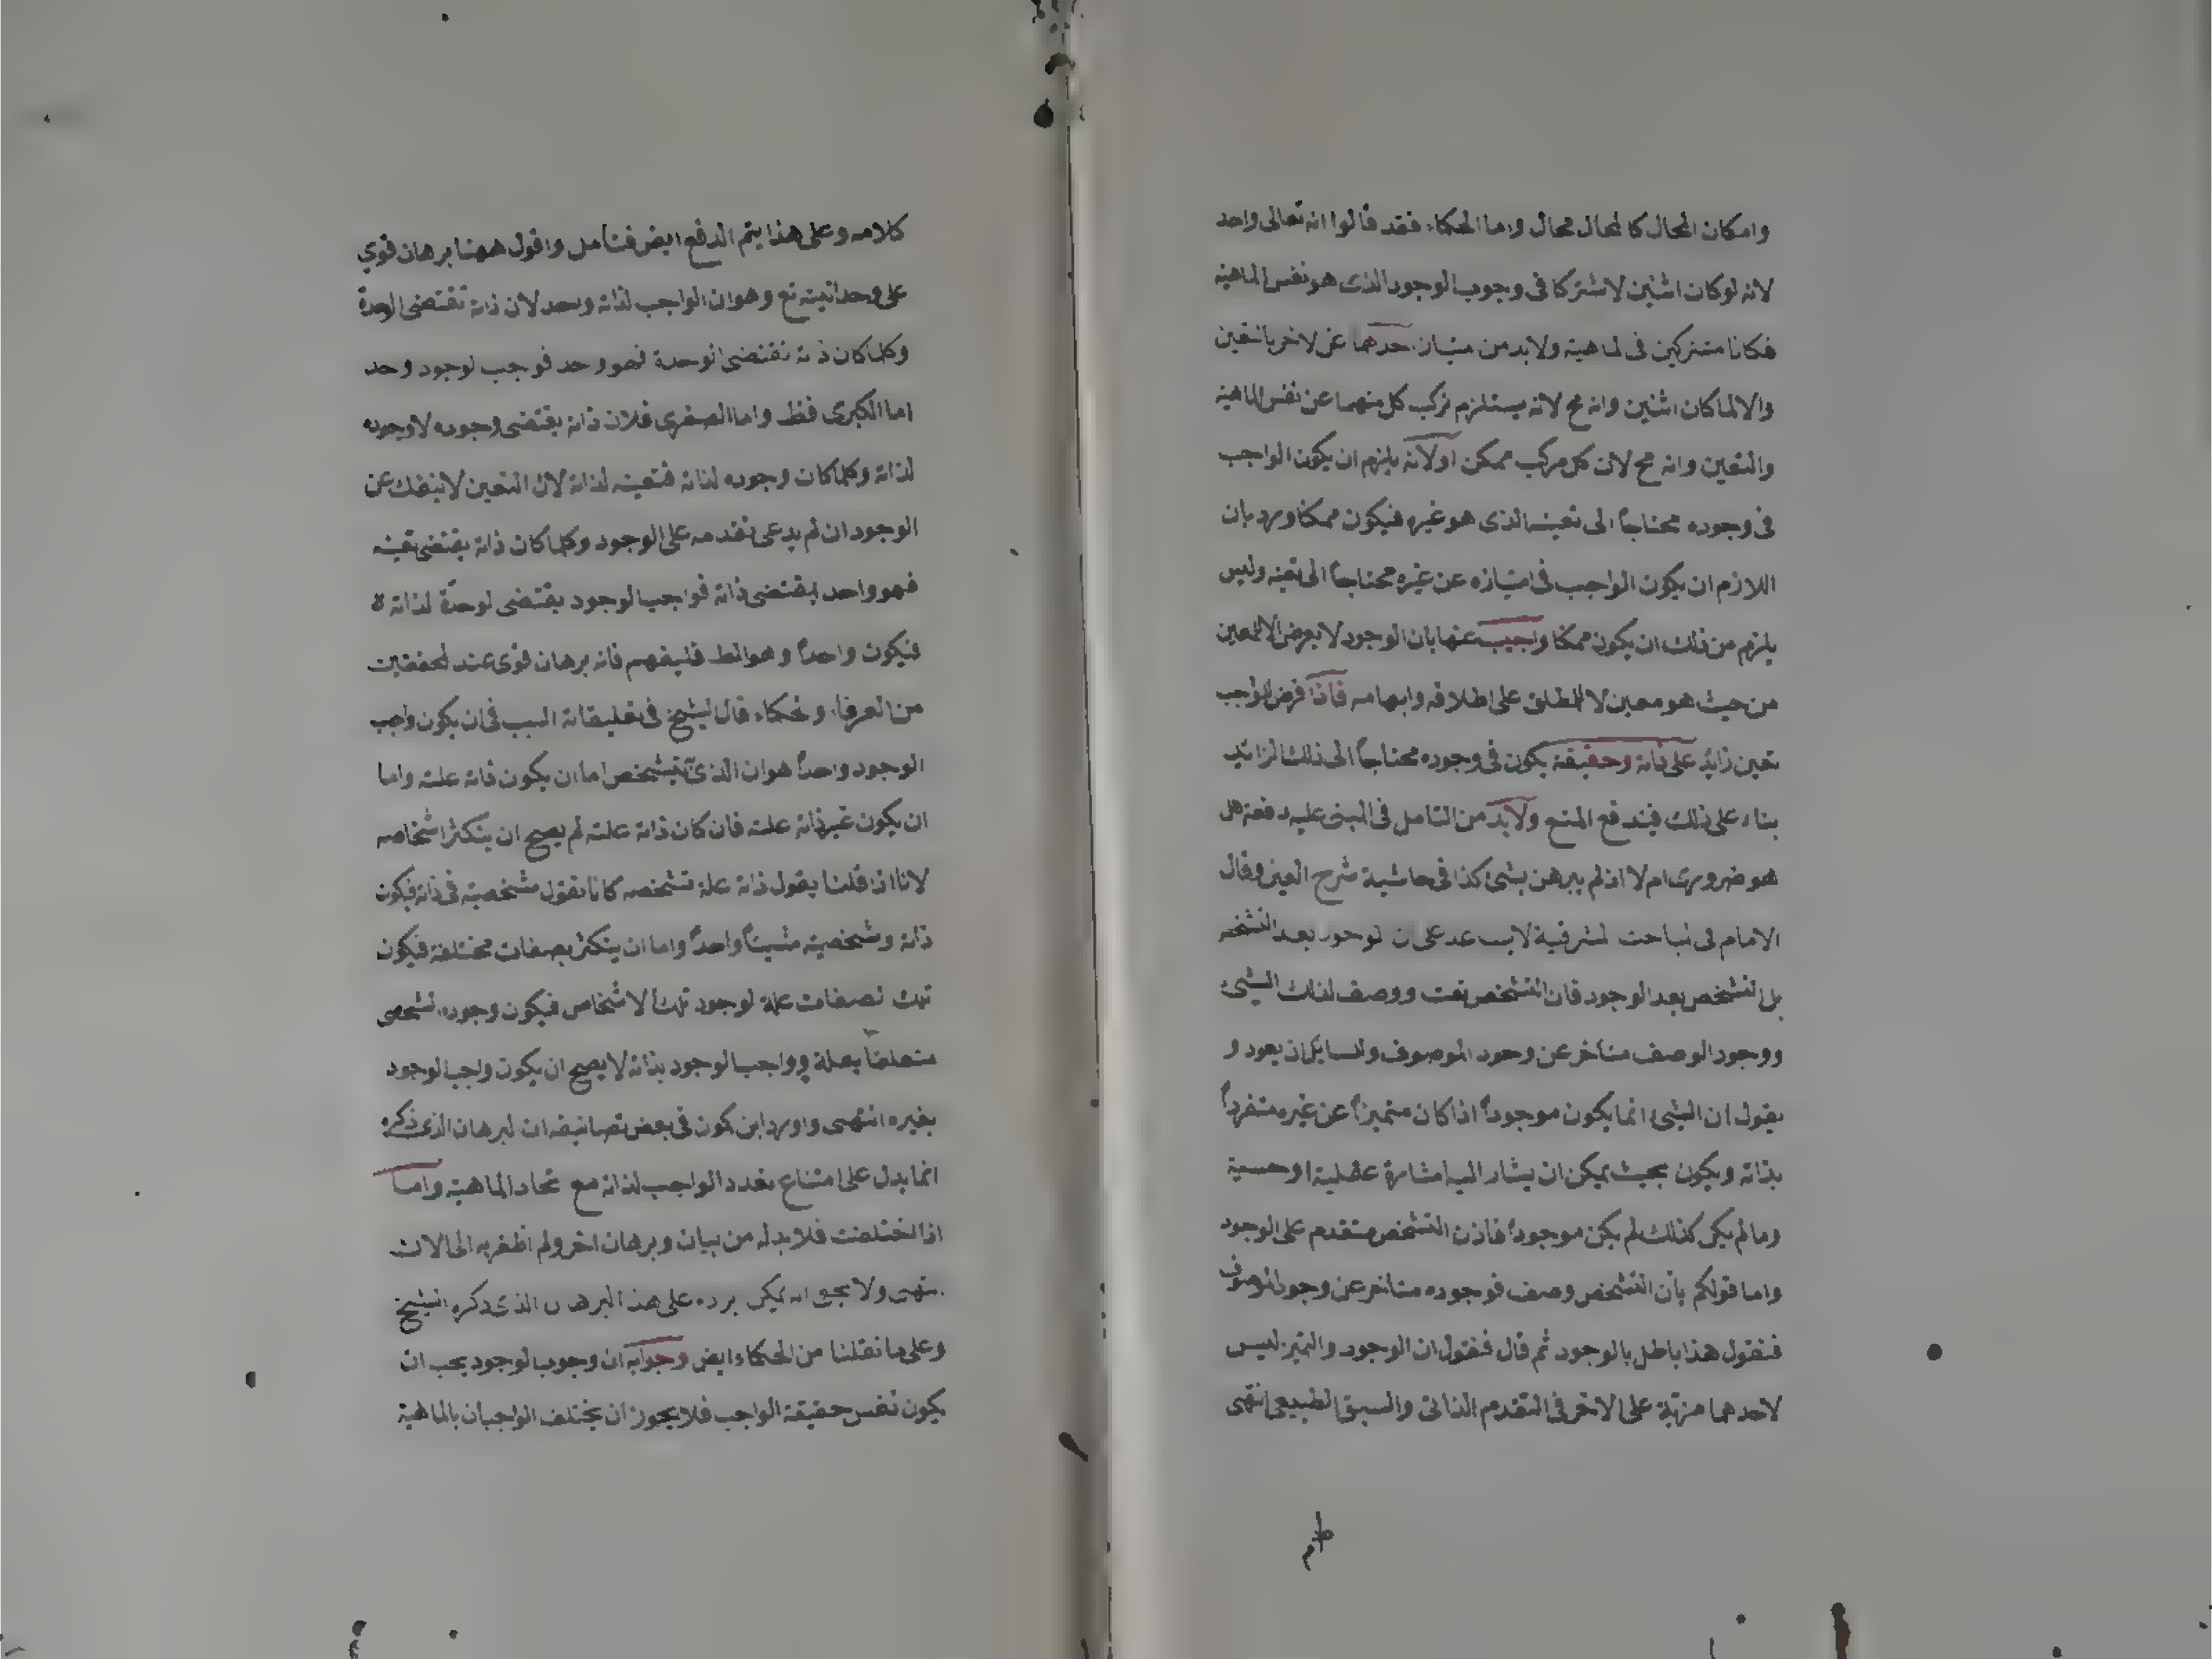 وامكان المحال كالمحال محال واما الحكماء فقد قالوا انه تعالى واحد
لانه لو كان اثنين لاشتركا فى وجوب الوجود الذى هو نفس الماهية
فكانا مشتركين فى لماهية ولابد من متياز حدهما عن لاخر بالتعين
والا لما كان اثنين وانه مح لانه يستلزم تركب كل منهما عن نفس الماهية
والتعين وانه مح لان كل مركب ممكن اولانه يلزم ان يكون الواجب
فى وجوده محتاجاً الى تعينه الذى هو غيره فيكون ممكنا ورد بان
اللازم ان يكون الواجب فى امتيازه عن غيره محتاجاً الى تعينه وليس
يلزم من ذلك ان يكون ممكنا واجيب عنها بان الوجود لا يعرض الا للمعين
من حيث هو معين لا للمطلق على اطلاقه وابهامه فاذا فرض للواجب
تعين زائد على ذاته وحقيقته يكون فى وجوده محتاجاً الى ذلك الزائد
بناء على ذلك فيندفع المنع ولابد من التامل فى المبنى عليه دفعه هل
هو ضرورى ام لا اذ لم يبرهن بشئ كذا فى حاشية شرح العين وقال
الامام فى لمباحث لمشرقية لا يساعد على ن لوجود بعد التشخص
بل التشخص بعد الوجود فان التشخص نعت ووصف لذلك الشئ
ووجود الوصف متاخر عن وجود الموصوف ولسايل ان يعود و
يقول ان الشئ انما يكون موجوداً اذا كان متميزاً عن غيره متفرداً
بذاته ويكون بحيث يمكن ان يشار اليه اشارة عقلية او حسية
وما لم يكن كذلك لم يكن موجوداً فاذن التشخص متقدم على الوجود
واما قولكم بأن التشخص وصف فوجوده متاخر عن وجود الموصوف
فنقول هذا باطل بالوجود ثم قال فنقول ان الوجود والتميز ليس
لاحدهما مزية على الاخر فى التقدم الذاتى والسبق الطبيعى انتهى
كلامه وعلى هذا يتم الدفع ايض فتأمل واقول ههنا برهان قوي
على وحدانيته تع وهو ان الواجب لذاته وحد لان ذاته تقتضى الوحدة
وكلما كان ذ ته تقتضى لوحدة فهو وحد فو جب لوجود وحد
اما الكبرى فظ واما الصغرى فلان ذاته يقتضى وجوده لا وجوده
لذاته وكلما كان وجوده لذاته فتعينه لذاته لان التعين لا ينفك عن
الوجود ان لم يدعى تقدمه على الوجود وكلما كان ذاته يقتضى تعينه
فهو واحد يقتضى ذاته فواجب الوجود يقتضى لوحدة لذاته
فيكون واحداً وهو المط فليفهم فانه برهان قوى عند لمحققين
من العرفاء ولحكماء قال الشيخ فى تعليقاته السبب فى ان يكون واجب
الوجود واحداً هو ان الذى يتشخص اما ان يكون ذاته علته واما
ان يكون غير ذاته علته فان كان ذاته علته لم يصح ان يتكثر اشخاصه
لانا اذا قلنا يقول ذاته علة تشخصه كانا نقول مشخصيته فى ذاته فيكون
ذاته وشخصيته شيئاً واحداً واما ان يتكثر بصفات مختلفة فيكون
تلك لصفات علة لوجود تلك الاشخاص فيكون وجوده لشخصى
متعلقاً بعلة وواجب الوجود بذاته لا يصح ان يكون واجب الوجود
بغيره انتهى واورد ابن كمونة فى بعض تصانيفه ان لبرهان الذى ذكره
انما يدل على امتناع تعدد الواجب لذاته مع تحاد الماهية واما
اذا اختلفت فلابد له من بيان وبرهان اخر ولم اظفر به الى الان
نتهى ولا يخفى انه يمكن يرده على هذ البرهان الذى ذكره الشيخ
وعلى ما نقلنا من الحكماء ايض وجوابه ان وجوب لوجود يجب ان
يكون نفس حقيقة الواجب فلا يجوز ان يختلف الواجبان بالماهية